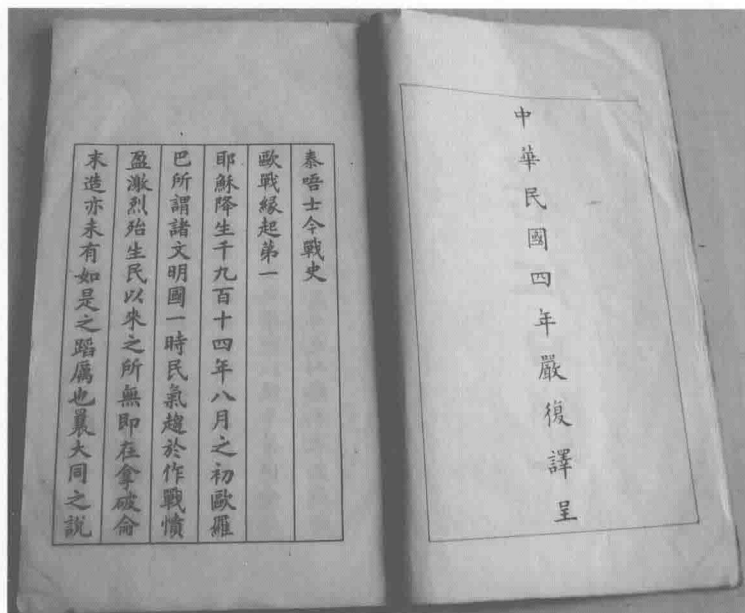 中華民國四年嚴復譯呈
泰晤士今戰史
歐戰緣起第一
耶穌降生千九百十四年八月之初歐羅
巴所謂諸文明國一時民氣趨於作戰憤
盈激烈殆生民以來之所無即在拿破侖
末造亦未有如是之蹈厲也曩大同之說